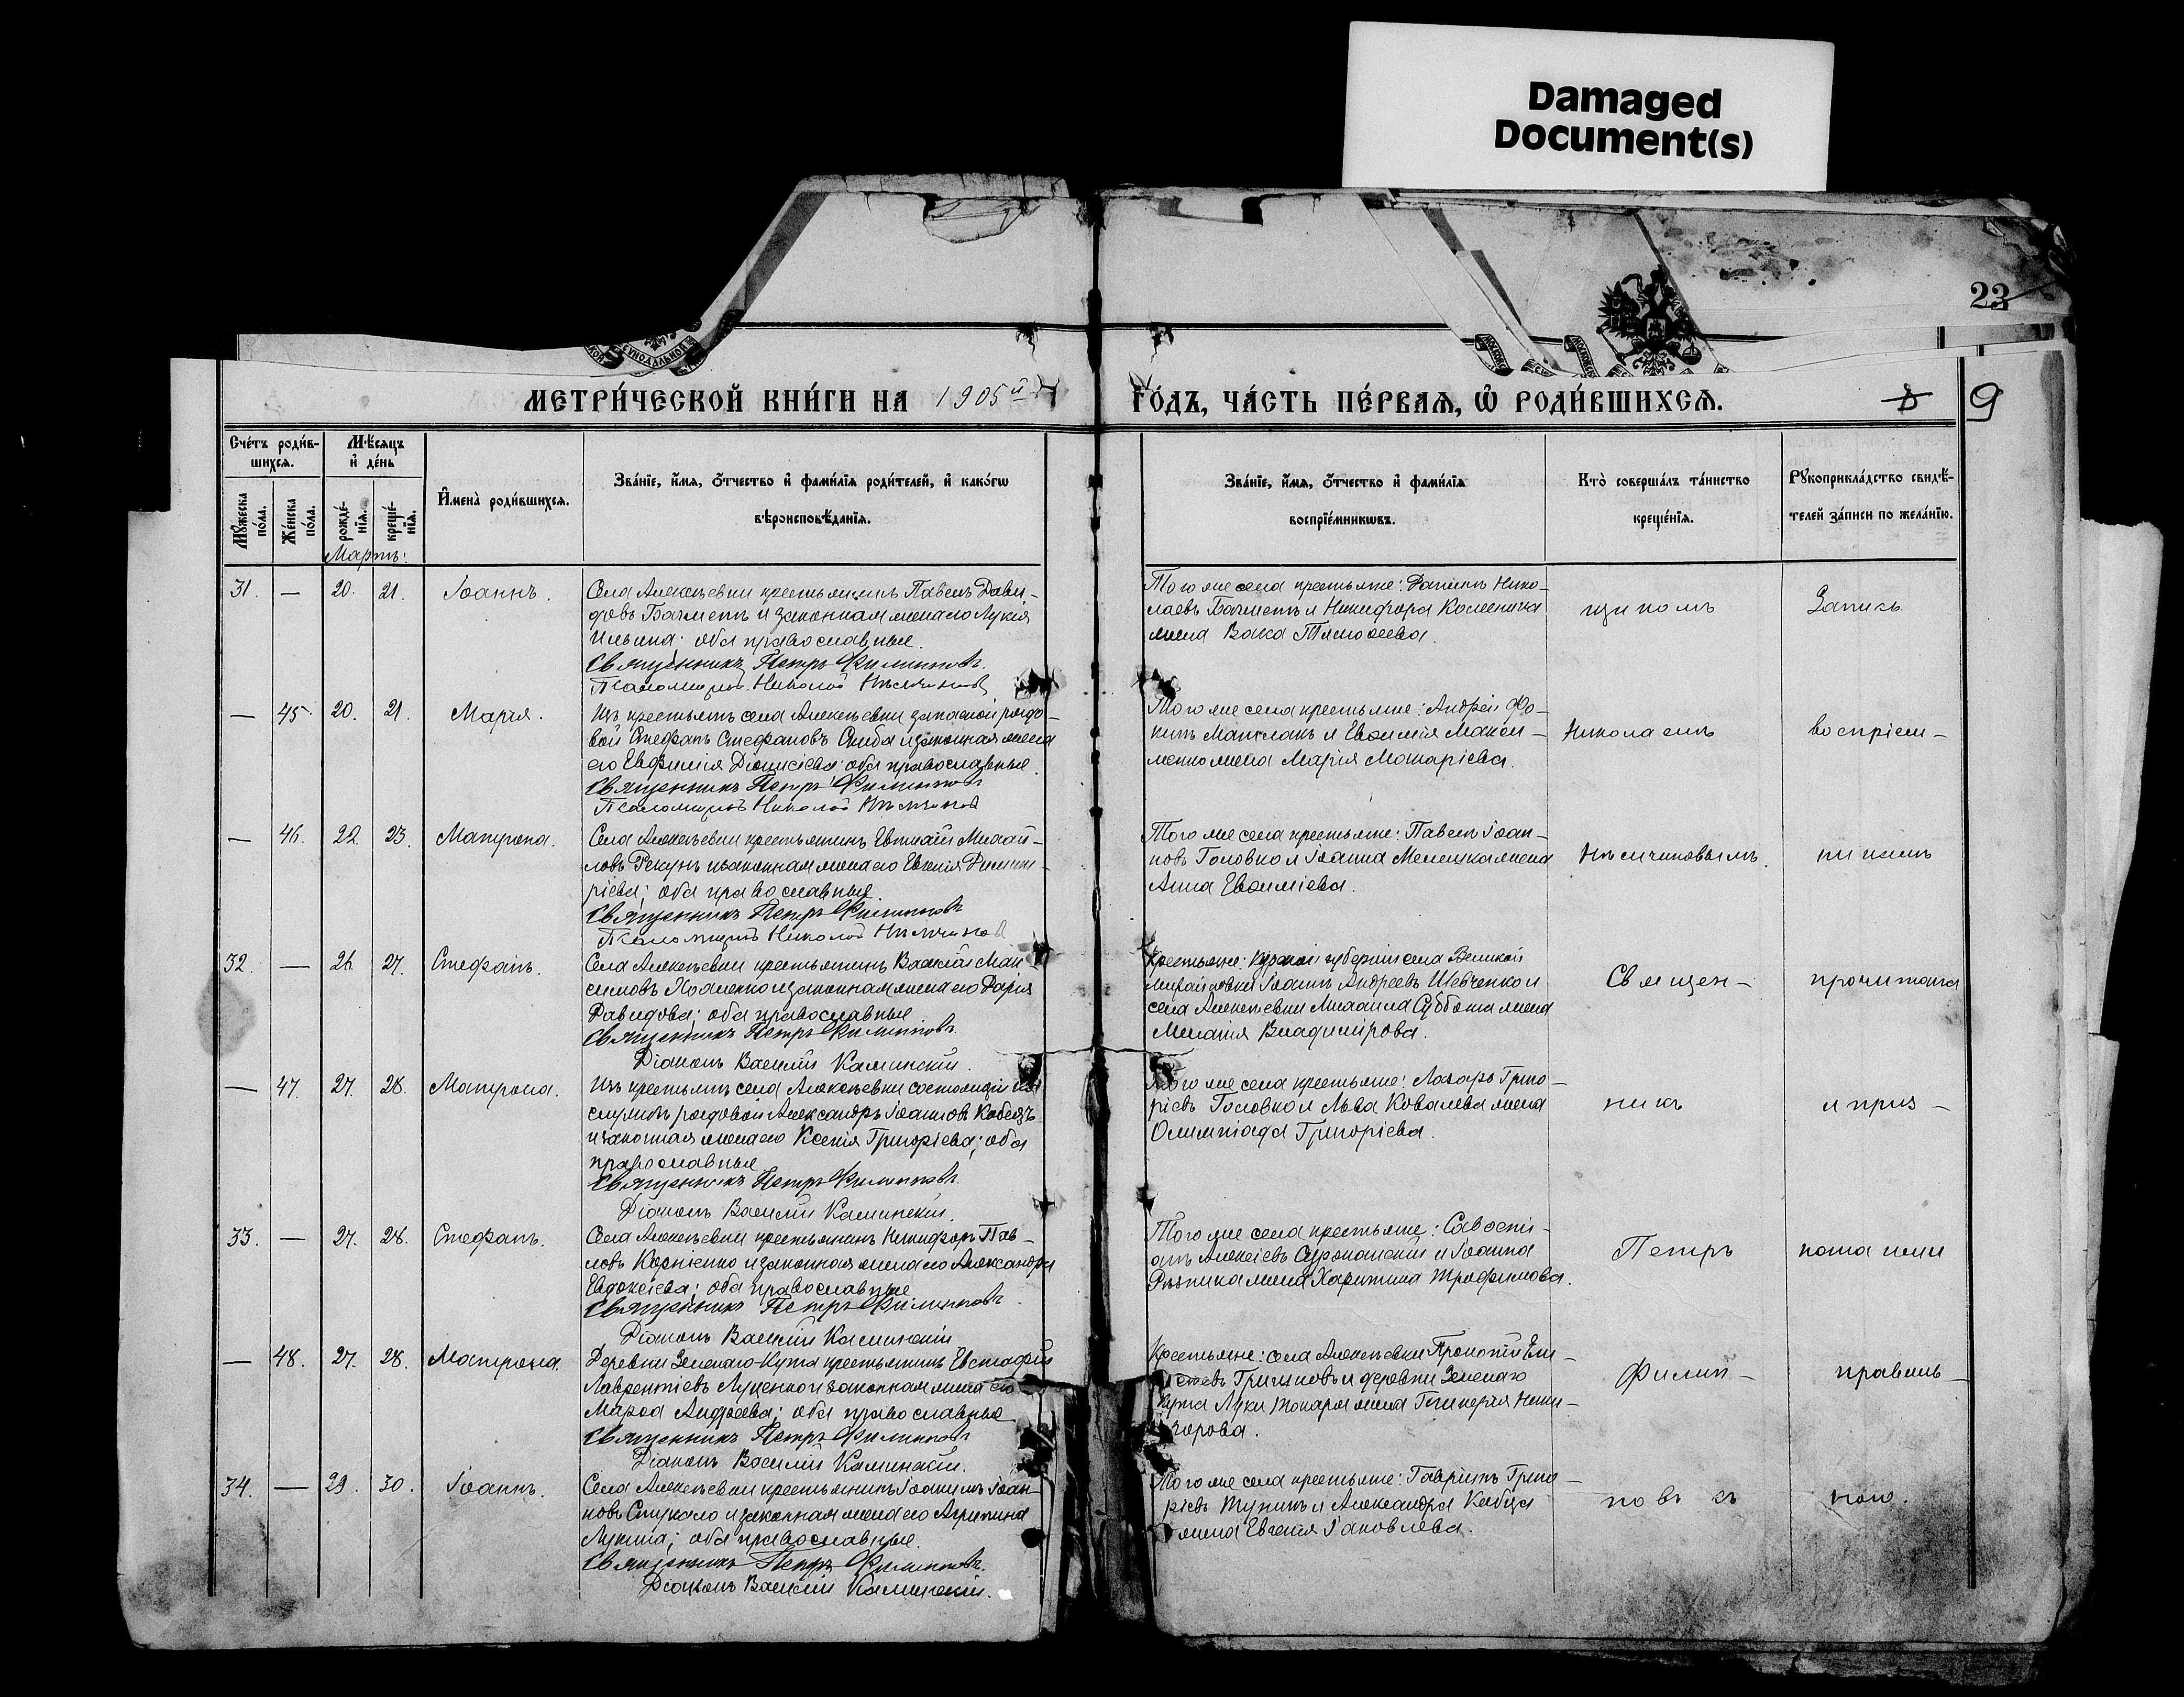 Damaged
Document(s)
23
МЕТРИ́ЧЕСКОЙ КНИ́ГИ НА 1905й
ГО́ДЪ, ЧА́СТЬ ПЕ́РВАѦ, Ѡ҆ РОДИ́ВШИХСѦ.
9
Сче́тъ роди́в-
шихсѧ.
Мꙋ́жеска по́ла.
Же́нска по́ла.
Мѣ́сѧцъ
и҆ де́нь
рожде́-
нїѧ.
креще́-
нїѧ.
И҆мена̀ роди́вшихсѧ.
Зва́нїе, и҆́мѧ, ѻ҆́тчество и҆ фами́лїѧ роди́телей, и҆ како́гѡ
вѣроисповѣ́данїѧ.
Зва́нїе, и҆́мѧ, ѻ҆́тчество и҆ фами́лїѧ
воспрїе́мникѡвъ.
Кто̀ соверша́лъ та́инство
креще́нїѧ.
Рꙋкоприкла́дство свидѣ́-
телей за́писи по жела́нїю.
Мартъ:
31. — 20. 21. Іоаннъ.
Села Алексѣевки крестьянинъ Павелъ Дави-
довъ Бачметъ и законная жена его Лукія
Ильина; оба православные.
Священникъ Петръ Филипповъ.
Псаломщикъ Николай
Того же села крестьяне: Даніилъ Нико-
лаевъ Бачметъ и Никифора Колесника
жена Васса Тимоѳеева.
щикомъ
Запись
— 45. 20. 21. Марія.
Изъ крестьянъ села Алексѣевки запасной рядо-
вой Стефанъ Стефановъ Скиба и законная жена
его Евфимія Діонисіева; оба православные.
Священникъ Петръ Филипповъ
Псаломщикъ Николай
Того же села крестьяне: Андрей Фо-
кинъ и Евѳимія
жена Марія Макаріева.
Николаемъ
воспріем-
— 46. 22. 23. Матрона.
Села Алексѣевки крестьянинъ Михай-
ловъ Рекунъ и законная жена его Евгенія Димит-
ріева; оба православные.
Священникъ Петръ Филипповъ
Псаломщикъ Николай
Того же села крестьяне: Павелъ Іоан-
новъ Головко и Іоанна жена
Анна Евѳиміева.
никамъ
32. — 26. 27. Стефанъ.
Села Алексѣевки крестьянинъ Василій Мак-
симовъ и законная жена его Дарія
Давидова; оба православные.
Священникъ Петръ Филипповъ.
Діаконъ Василій Каминскій.
Крестьяне: Курской губерніи села Великой
Михайловки Іоаннъ Андреевъ Шевченко и
села Алексѣевки Михаила Субботы жена
Меланія Владимірова.
Священ-
прочитана
— 47. 27. 28. Матрона.
Изъ крестьянъ села Алексѣевки состоящій на
службѣ рядовой Александръ Іоанновъ Кобецъ
и законная жена его Ксенія Григоріева; оба
православные.
Священникъ Петръ Филипповъ.
Діаконъ Василій Каминскій.
Того же села крестьяне: Лазарь Григо-
ріевъ Головко и Льва Ковалева жена
Олимпіада Григоріева.
никъ
и приз-
33. — 27. 28. Стефанъ.
Села Алексѣевки крестьянинъ Никифоръ Пав-
ловъ Корніенко и законная жена его Александра
Евдокіева; оба православные.
Священникъ Петръ Филипповъ
Діаконъ Василій Каминскій
Того же села крестьяне: Савості-
анъ Алексіевъ и Іоанна
Рѣзника жена Харитина Трофимова.
Петръ
ната ими
— 48. 27. 28. Матрона.
Деревни Зеленаго-Кута крестьянинъ Евстафій
Лаврентіевъ Луценко и законная жена его
Марѳа Андреева; оба православные
Священникъ Петръ Филипповъ
Діаконъ Василій Каминскій.
Крестьяне: села Алексѣевки Прокопій
и деревни Зеленаго
Кута Луки Токаря жена Гликерія Ники-
форова.
Филип-
правиль-
34. — 29. 30. Іоаннъ.
Села Алексѣевки крестьянинъ Іоакимъ Іоан-
новъ Стукало и законная жена его Агрипина
Лукина; оба православные.
Священникъ Петръ Филипповъ.
Діаконъ Василій Каминскій.
Того же села крестьяне: Гавріилъ Григо-
ріевъ Тупикъ и Александра Кобца
жена Евгенія Іаковлева.
повъ съ
ною.